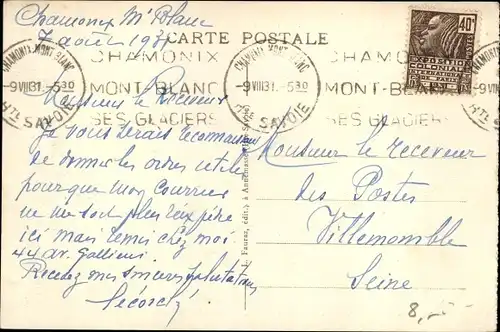 Chamonix Mt Blanc
7 août 1931
CARTE POSTALE
CHAMONIX MONT-BLANC
-9 VIII 31.-5 30
HTE SAVOIE
CHAMONIX
MONT-BLANC
SES GLACIERS
CHAMONIX MONT-BLANC
-9 VIII 31.-5 30
HTE SAVOIE
CHAMONIX
MONT-BLANC
SES GLACIERS
40c
POSTES
EXPOSITION
COLONIALE
INTERNATIONALE
DE PARIS
Monsieur le Receveur
Je vous serais reconnaissant
de donner les ordres utiles
pourque mon Courrier
ne me soit plus réexpédié
ici mais remis chez moi
44 av. Gallieni
Recevez mes sincères salutations
Monsieur le receveur
des Postes
Villemomble
Seine
8,-